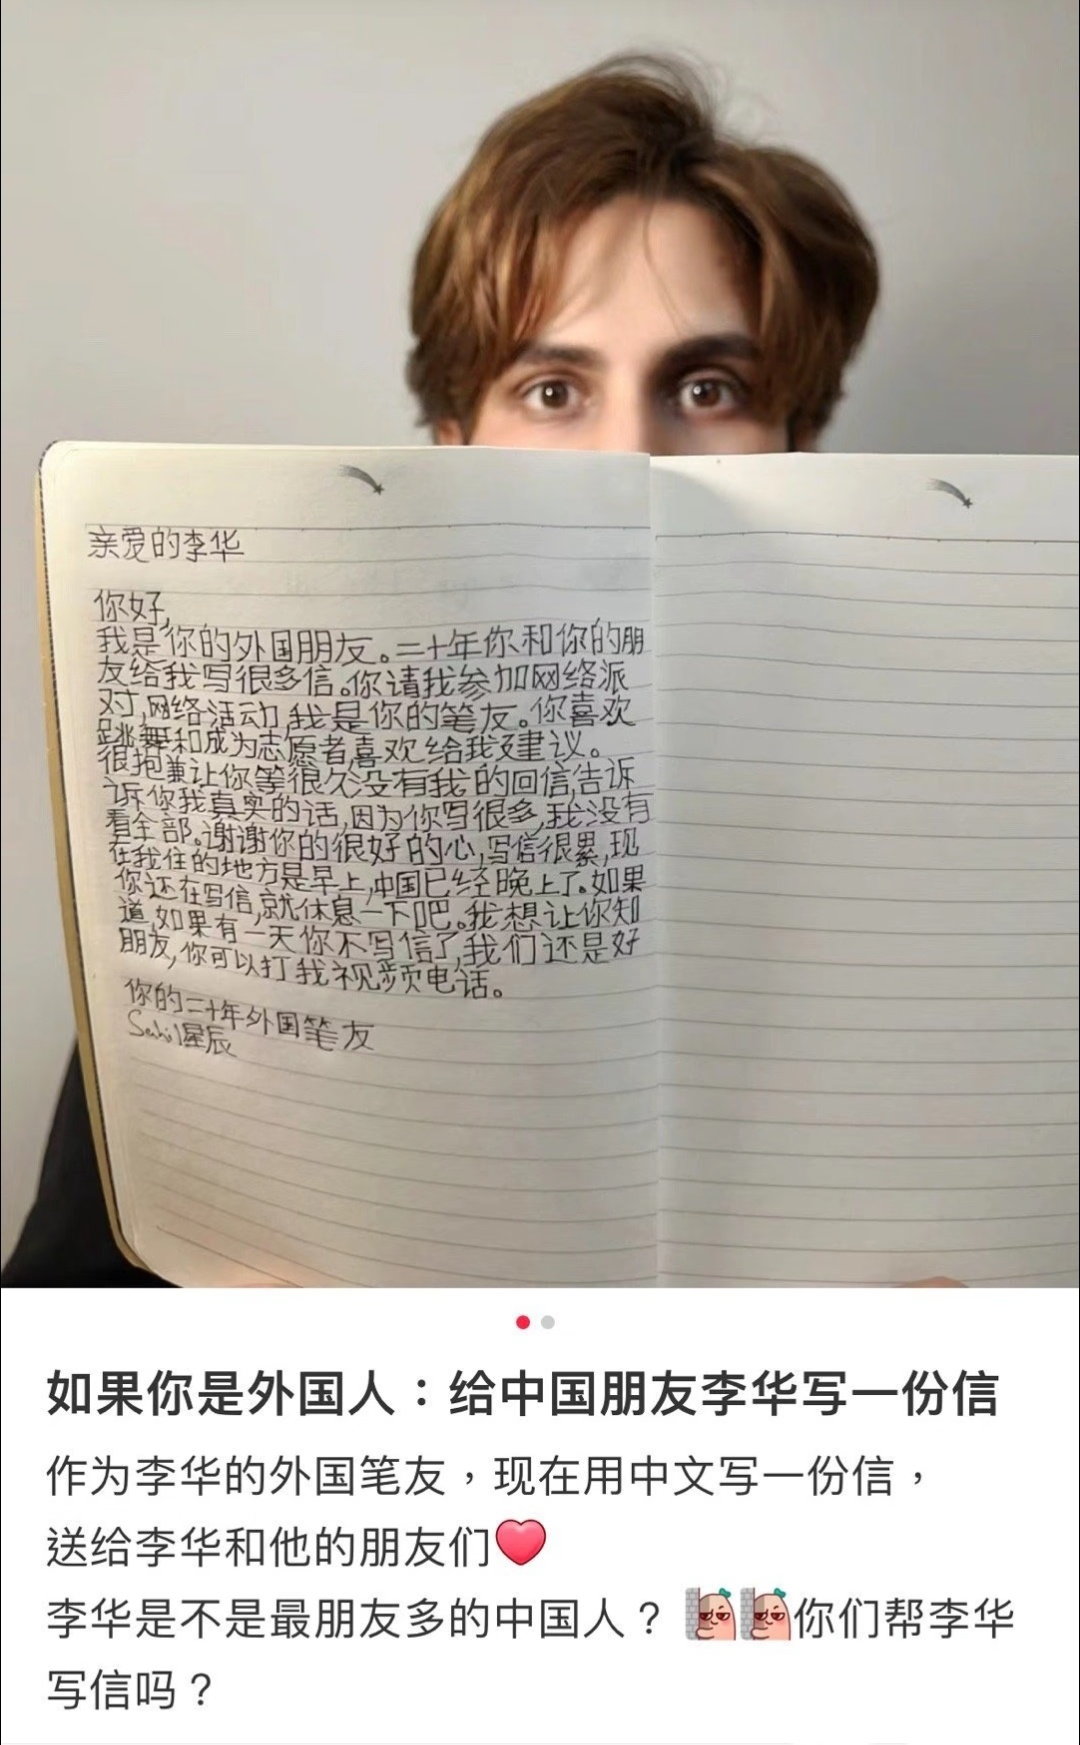 亲爱的李华
你好,
我是你的外国朋友。二十年你和你的朋
友给我写很多信。你请我参加网络派
对,网络活动,我是你的笔友。你喜欢
跳舞和成为志愿者,喜欢给我建议。
很抱兼让你等很久没有我的回信,告诉
诉你我真实的话,因为你写很多,我没有
看全部。谢谢你的很好的心,写信很累,现
在我住的地方是早上,中国已经晚上了。如果
你还在写信,就休息一下吧。我想让你知
道,如果有一天你不写信了,我们还是好
朋友,你可以打我视频电话。
你的二十年外国笔友
Sahil星辰
如果你是外国人：给中国朋友李华写一份信
作为李华的外国笔友，现在用中文写一份信，
送给李华和他的朋友们❤️
李华是不是最朋友多的中国人？你们帮李华
写信吗？